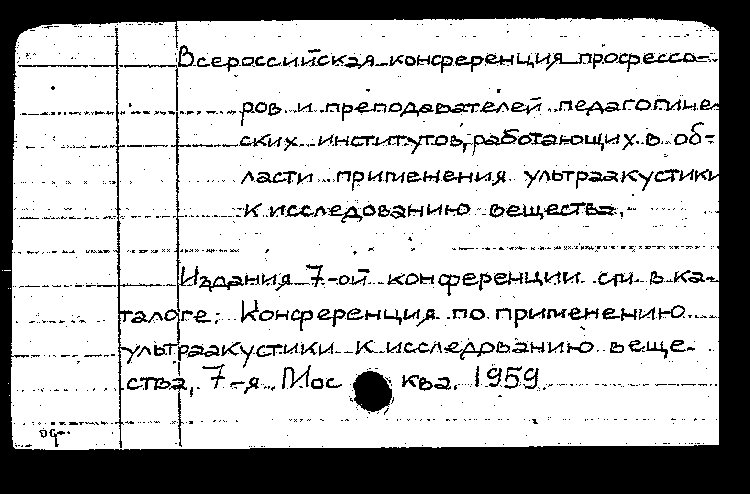 Всероссийская конференция профессо-
ров и преподавателей педагогиче-
ских институтов, работающих в об-
ласти применения ультраакустики
к исследованию вещества.
Издания 7-ой конференции см в ка-
талоге: Конференция по применению
ультраакустики к исследованию веще-
ства, 7-я. Москва. 1959.